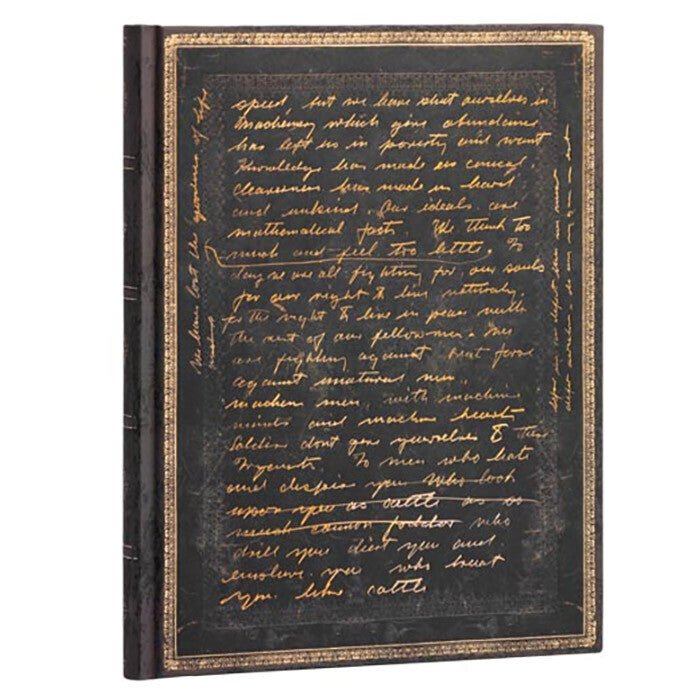 speed, but we have shut ourselves in
Machinery which gives abundance
has left us in poverty and want
Knowledge has made us cynical.
cleverness has made us hard
and unkind. Our ideals are
mathematical facts. We think too
much and feel too little. To
day we are all fighting for our souls
for our right to live naturally
for the right to live in peace with
the rest of our fellowmen. Men
are fighting against
against unatural men.
machen men, with machine
minds and machine heart
Soldiers dont give yourselves to these
To men who hate
and despise you who look
upon you as cattle as so
much cannon fodder who
drill you diet you and
enslave you who treat
you like cattle
We have lost the of life